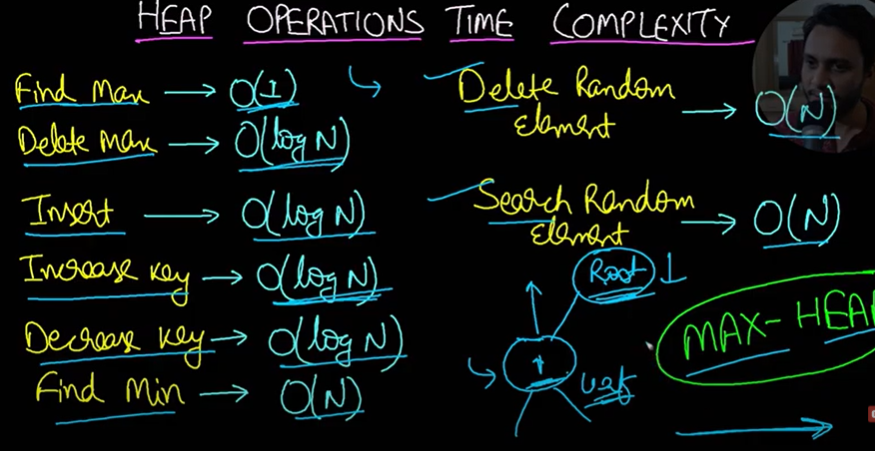 HEAP OPERATIONS TIME COMPLEXITY
Find Max → O(1)
Delete Max → O(log N)
Insert → O(log N)
Increase Key → O(log N)
Decrease Key → O(log N)
Find Min → O(N)
Delete Random
Element → O(N)
Search Random
Element → O(N)
Root ↓
↑
MAX-HEAP